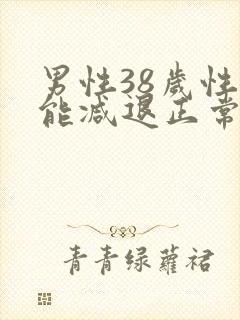 男性38歲性
能減退正常
青青綠蘿裙